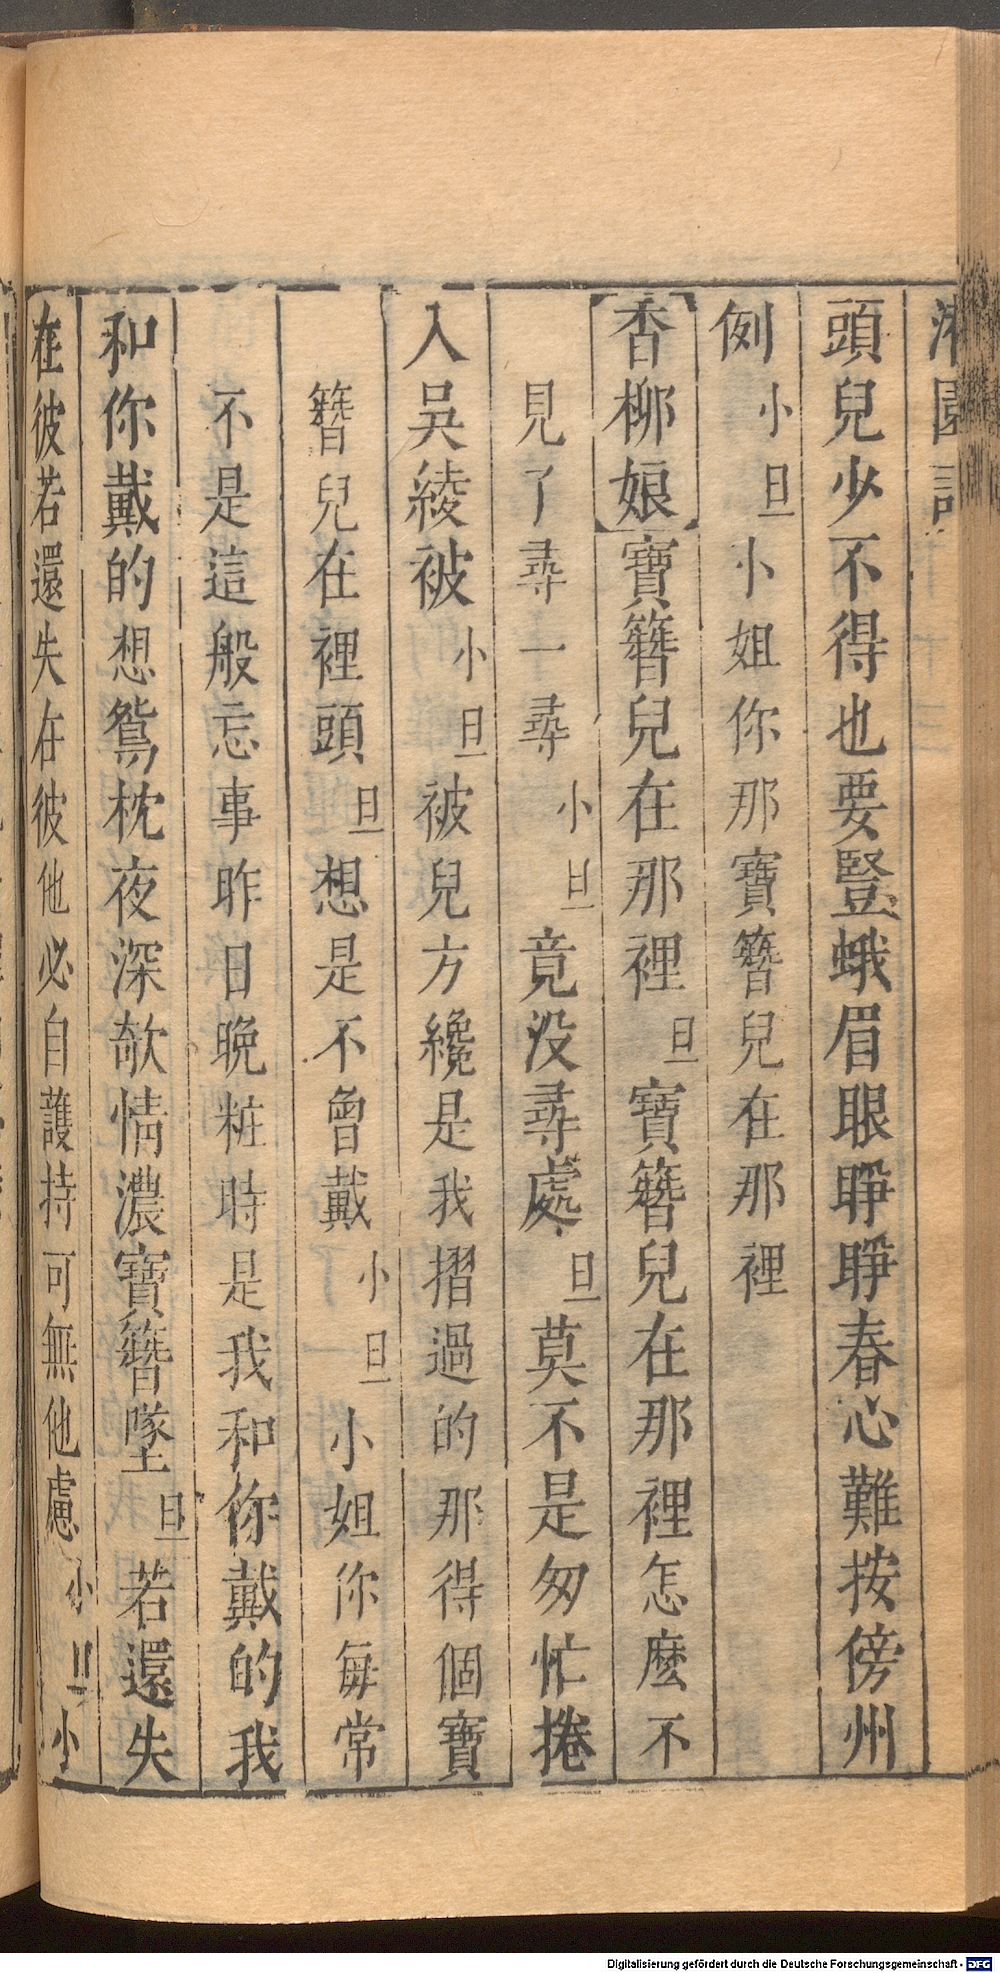 園記
頭兒少不得也要豎蛾眉眼睜睜春心難按傍州
例小旦小姐你那寶簪兒在那裡
香柳娘寶簪兒在那裡旦寶簪兒在那裡怎麽不
見了尋一尋小旦竟没尋處旦莫不是匆忙捲
入吳綾被小旦被兒方纔是我摺過的那得個寶
簪兒在裡頭旦想是不曾戴小旦小姐你每常
不是這般忘事昨日晚粧時是我和你戴的我
和你戴的想鴛枕夜深欹情濃寶簪墜旦若還失
在彼若還失在彼他必自護持可無他慮小旦小
Digitalisierung gefördert durch die Deutsche Forschungsgemeinschaft - DFG